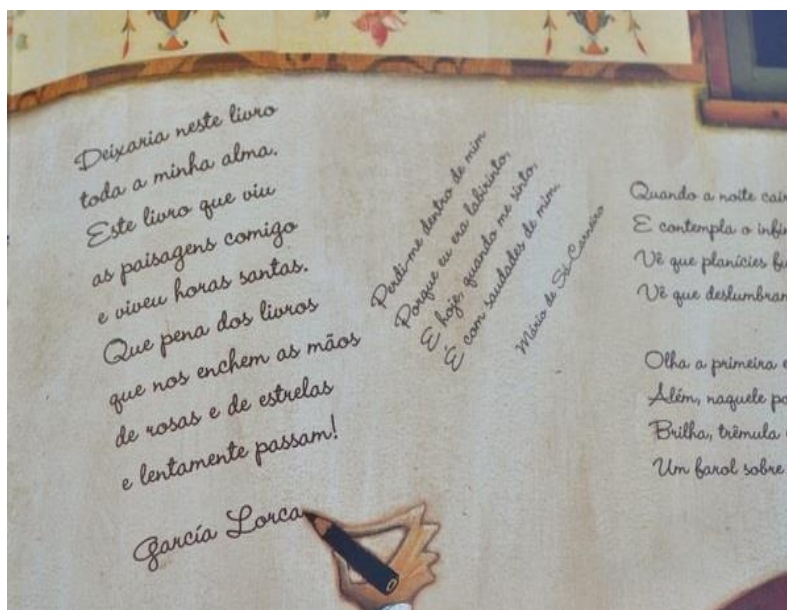 Deixaria neste livro
toda a minha alma.
Este livro que viu
as paisagens comigo
e viveu horas santas.
Que pena dos livros
que nos enchem as mãos
de rosas e de estrelas
e lentamente passam!
García Lorca
Perdi-me dentro de mim
Porque eu era labirinto,
E hoje, quando me sinto,
É com saudades de mim.
Mário de Sá-Carneiro
Quando a noite
E contempla o
Vê que planícies
Vê que
Olha a primeira
Além, naquele
Brilha, trêmula
Um farol sobre